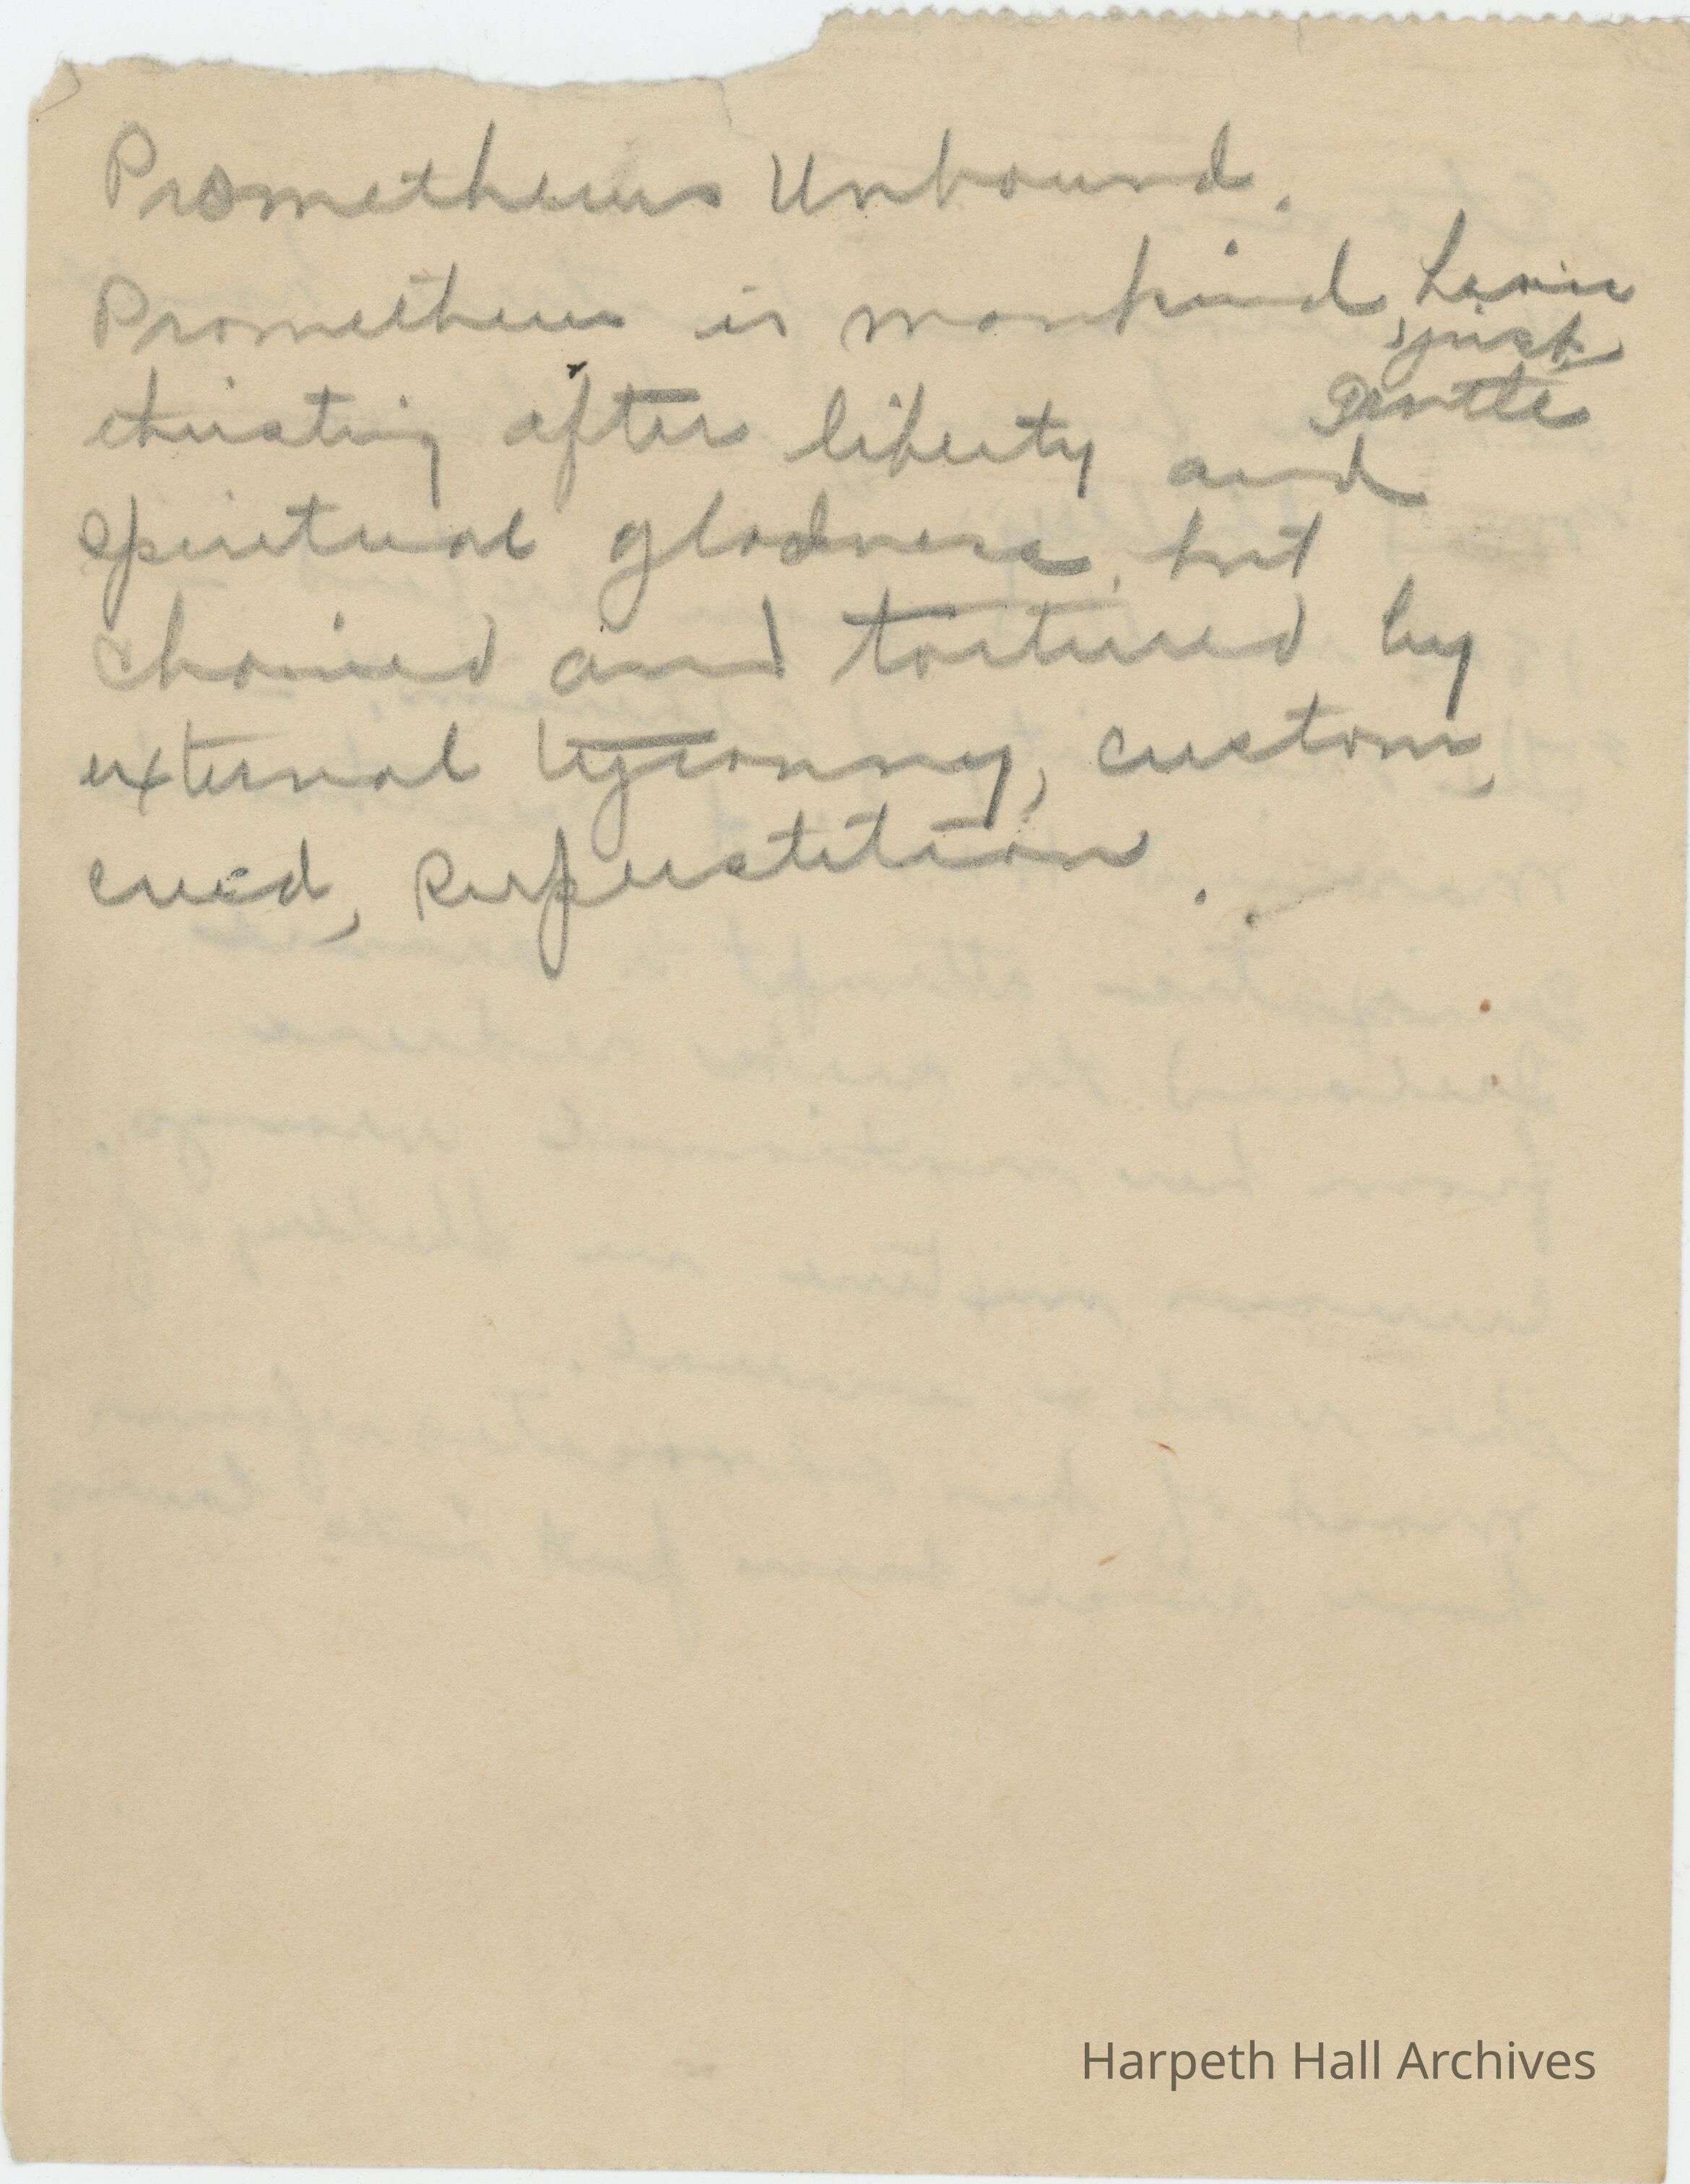 Prometheus Unbound.
Prometheus is mankind, heroic
, just,
Gentle
thirsting after liberty and
spiritual gladness, but
chained and tortured by
external tyranny, custom,
creed, superstition.
Harpeth Hall Archives